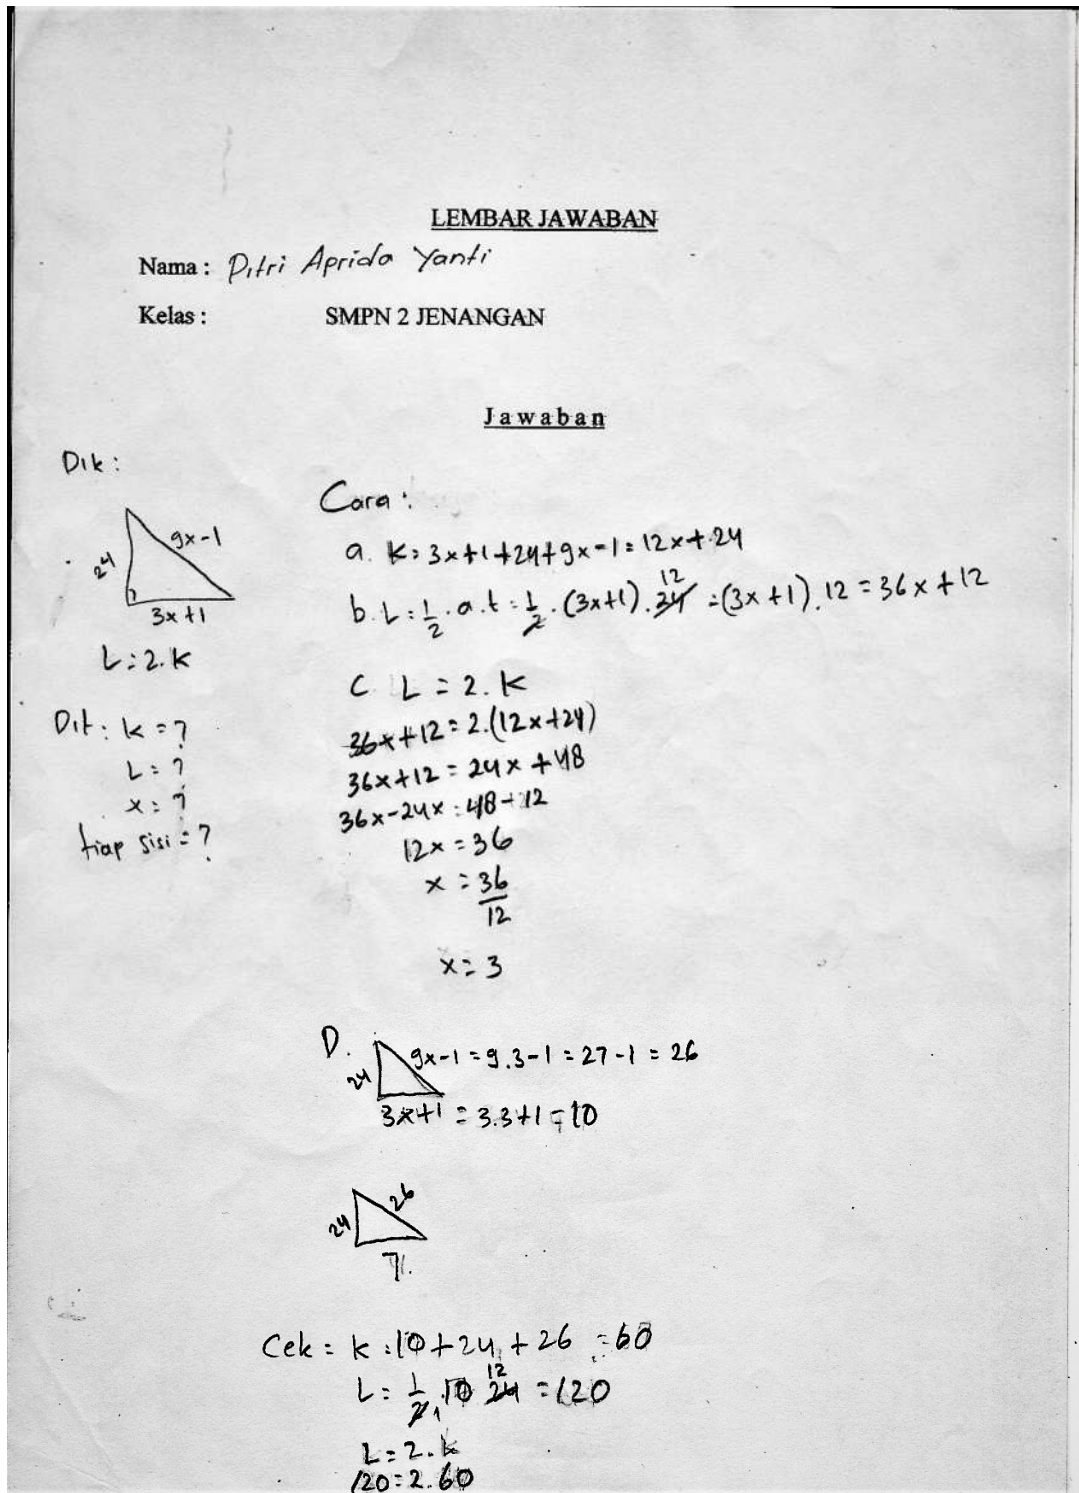 LEMBAR JAWABAN
Nama : Pitri Aprida Yanti
Kelas : SMPN 2 JENANGAN
Jawaban
Dik :
24
9x-1
3x+1
L = 2.K
Dit : K = ?
L = ?
x = ?
tiap sisi = ?
Cara :
a. K = 3x+1+24+9x-1 = 12x+24
b. L = 1/2 . a.t = 1/2 . (3x+1). 24 12 = (3x+1). 12 = 36x+12
C. L = 2. K
36x+12 = 2.(12x+24)
36x+12 = 24x +48
36x-24x = 48-12
12x = 36
x = 36/12
x = 3
D.
24
9x-1 = 9.3-1 = 27-1 = 26
3x+1 = 3.3+1 = 10
24
26
Cek = K = 10+24+26 = 60
L = 1/2 . 10 24 12 = 120
L = 2. k
120 = 2. 60